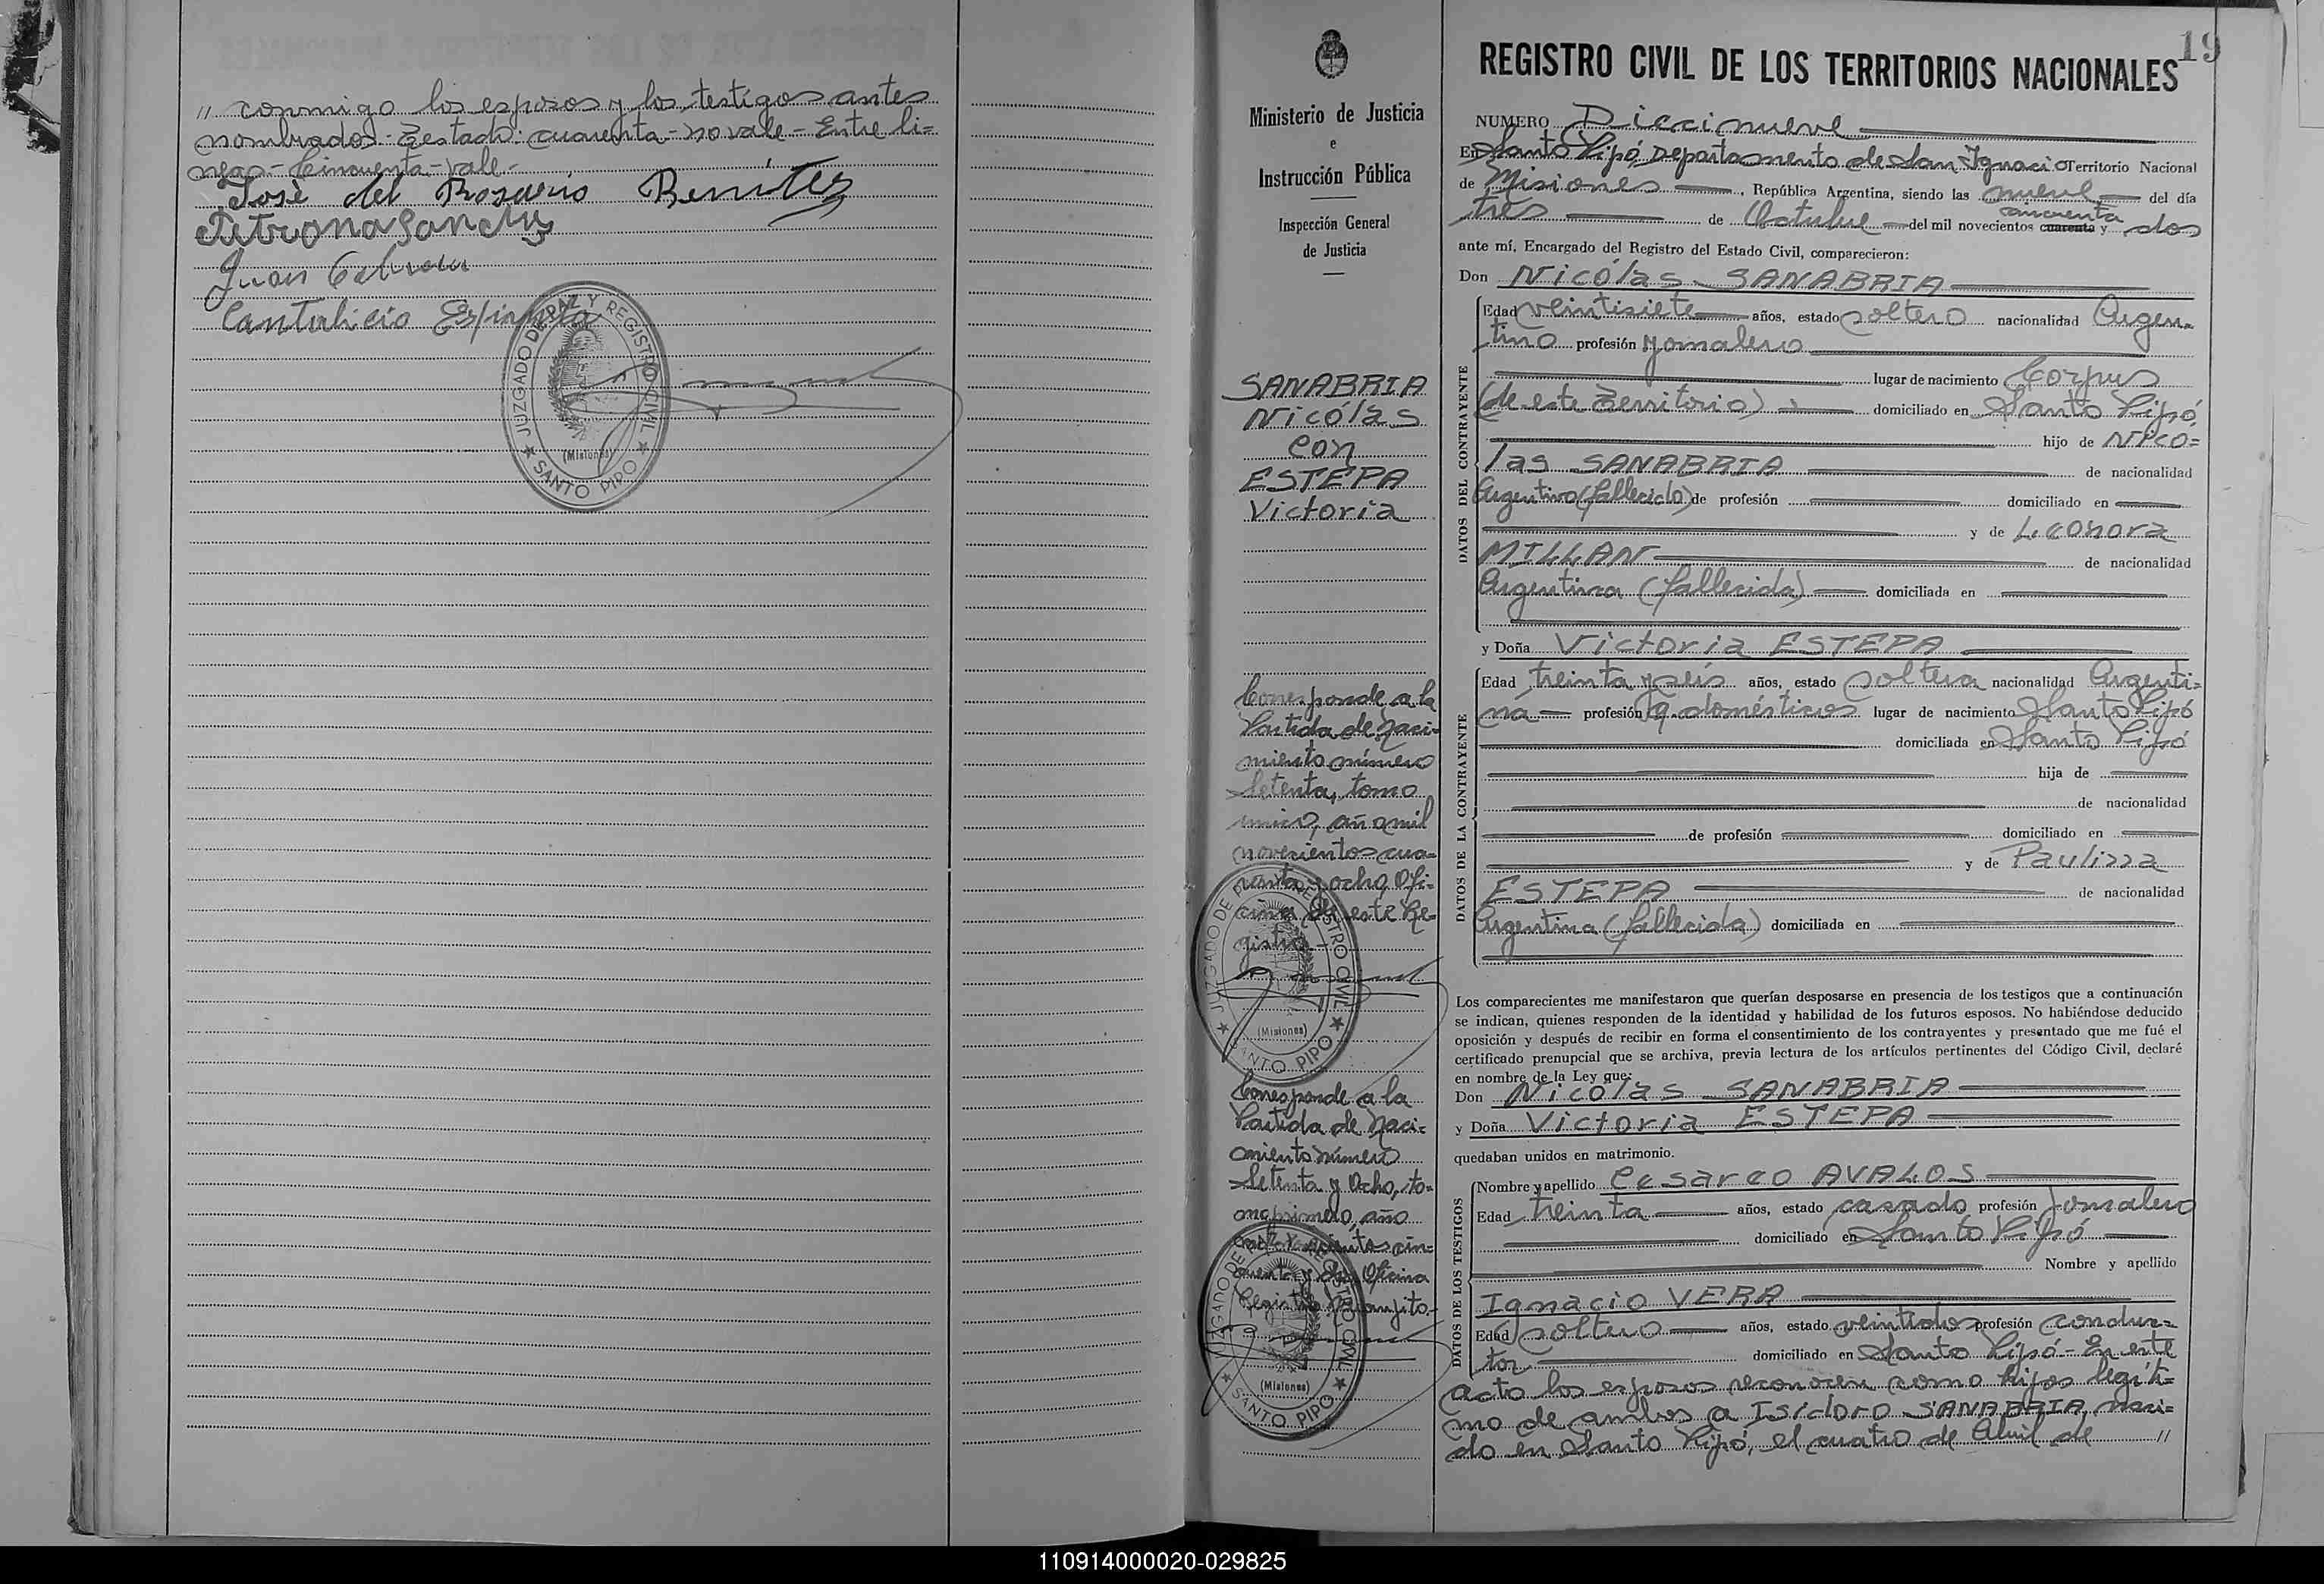 " conmigo los esposos y los testigos antes
nombrados. Testado: cuarenta - No vale - Entre li=
neas - Cincuenta - Vale -
José del Rosario Benítez
Petrona Sanchez
Juan Cabrera
Cantalicio Espíndola
JUZGADO DE PAZ Y REGISTRO CIVIL
(Misiones)
SANTO PIPO
Ministerio de Justicia
e
Instrucción Pública
Inspección General
de Justicia
SANABRIA
Nicólas
con
ESTEPA
Victoria
Corresponde a la
Partida de Naci=
miento número
Setenta, tomo
único, año mil
novecientos cua=
renta y ocho, Ofi=
cina de este Re=
gistro.-
JUZGADO DE PAZ Y REGISTRO CIVIL
(Misiones)
SANTO PIPO
Corresponde a la
Partida de Naci=
miento número
Setenta y Ocho, to=
mo primero, año
mil novecientos cin=
cuenta y dos, Oficina
Registro
JUZGADO DE PAZ Y REGISTRO CIVIL
(Misiones)
SANTO PIPO
19
REGISTRO CIVIL DE LOS TERRITORIOS NACIONALES
NUMERO Diecinueve
En Santo Pipó, Departamento de San Ignacio Territorio Nacional
de Misiones, República Argentina, siendo las nueve del día
cincuenta
tres de Octubre del mil novecientos cuarenta y dos
ante mí, Encargado del Registro del Estado Civil, comparecieron:
Don Nicólas SANABRIA
DATOS DEL CONTRAYENTE
Edad veintisiete años, estado soltero nacionalidad Argen=
tino profesión jornalero
lugar de nacimiento Corpus
(de este Territorio) domiciliado en Santo Pipó,
hijo de Nico=
las SANABRIA de nacionalidad
Argentino (fallecido) de profesión domiciliado en
y de Leonora
MILLAN de nacionalidad
Argentina (fallecida) domiciliada en
y Doña Victoria ESTEPA
DATOS DE LA CONTRAYENTE
Edad treinta y seis años, estado soltera nacionalidad Argenti=
na profesión q. domésticos lugar de nacimiento Santo Pipó
domiciliada en Santo Pipó
hija de
de nacionalidad
de profesión domiciliado en
y de Paulina
ESTEPA de nacionalidad
Argentina (fallecida) domiciliada en
Los comparecientes me manifestaron que querían desposarse en presencia de los testigos que a continuación
se indican, quienes responden de la identidad y habilidad de los futuros esposos. No habiéndose deducido
oposición y después de recibir en forma el consentimiento de los contrayentes y presentado que me fué el
certificado prenupcial que se archiva, previa lectura de los artículos pertinentes del Código Civil, declaré
en nombre de la Ley que:
Don Nicolas SANABRIA
y Doña Victoria ESTEPA
quedaban unidos en matrimonio.
DATOS DE LOS TESTIGOS
Nombre y apellido Cesareo AVALOS
Edad treinta años, estado casado profesión Jornalero
domiciliado en Santo Pipó
Nombre y apellido
Ignacio VERA
Edad soltero años, estado veintidos profesión conduc=
tor domiciliado en Santo Pipó - En este
acto los esposos reconocen como hijos legíti=
mo de ambos a ISidoro SANABRIA, naci=
do en Santo Pipó, el cuatro de Abril de "
110914000020-029825